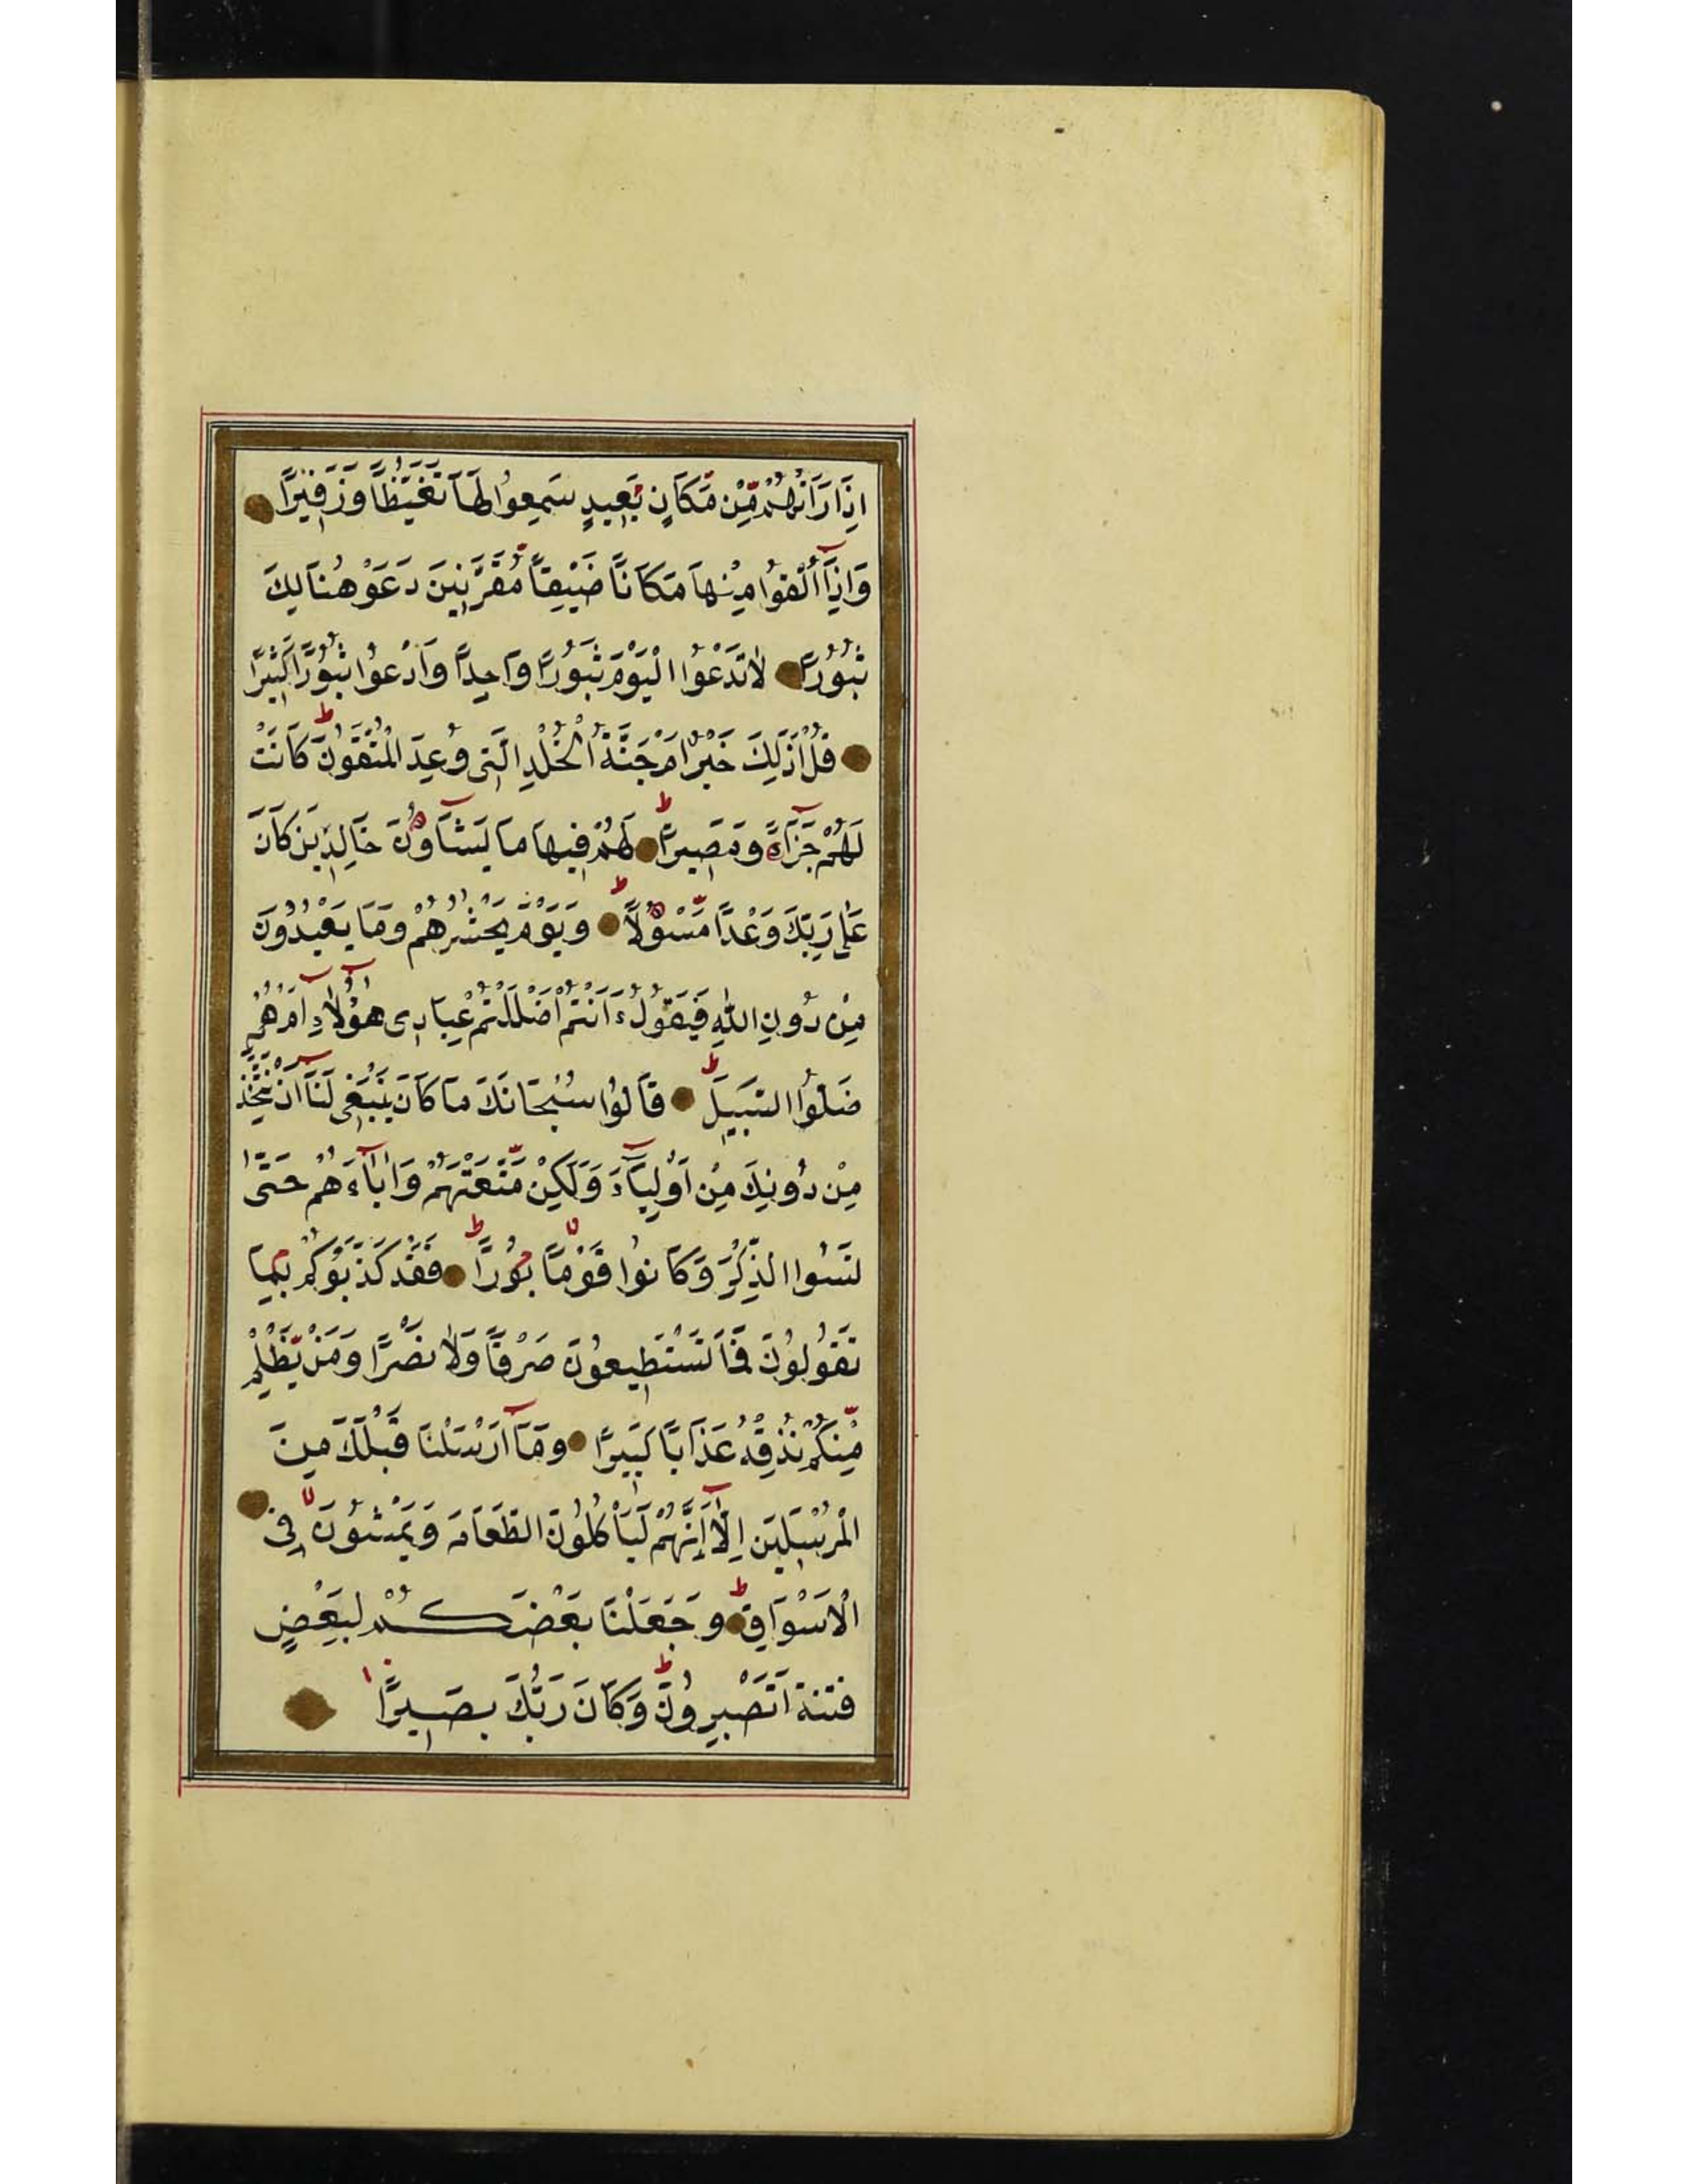 اِذَا رَاَتْهُمْ مِّنْ مَّكَانٍ بَعِيدٍ سَمِعُوا لَهَا تَغَيُّظًا وَزَفِيرًا
وَاِذَآ اُلْقُوا مِنْهَا مَكَانًا ضَيِّقًا مُّقَرَّنِينَ دَعَوْا هُنَالِكَ
ثُبُورًا لَا تَدْعُوا الْيَوْمَ ثُبُورًا وَاحِدًا وَادْعُوا ثُبُورًا كَثِيرًا
قُلْ اَذٰلِكَ خَيْرٌ اَمْ جَنَّةُ الْخُلْدِ الَّتِى وُعِدَ الْمُتَّقُونَ ط كَانَتْ
لَهُمْ جَزَآءً وَمَصِيرًا ط لَهُمْ فِيهَا مَا يَشَآؤُنَ خَالِدِينَ كَانَ
عَلٰى رَبِّكَ وَعْدًا مَّسْؤُلًا ط وَيَوْمَ يَحْشُرُهُمْ وَمَا يَعْبُدُونَ
مِنْ دُونِ اللّٰهِ فَيَقُولُ ءَاَنْتُمْ اَضْلَلْتُمْ عِبَادِى هٰٓؤُلَآءِ اَمْ هُمْ
ضَلُّوا السَّبِيلَ ط قَالُوا سُبْحَانَكَ مَا كَانَ يَنْبَغِى لَنَآ اَنْ نَتَّخِذَ
مِنْ دُونِكَ مِنْ اَوْلِيَآءَ وَلٰكِنْ مَّتَّعْتَهُمْ وَاٰبَآءَهُمْ حَتّٰى
نَسُوا الذِّكْرَ وَكَانُوا قَوْمًا بُورًا ط فَقَدْ كَذَّبُوكُمْ بِمَا
تَقُولُونَ فَمَا تَسْتَطِيعُونَ صَرْفًا وَلَا نَصْرًا وَمَنْ يَّظْلِمْ
مِّنْكُمْ نُذِقْهُ عَذَابًا كَبِيرًا وَمَآ اَرْسَلْنَا قَبْلَكَ مِنَ
الْمُرْسَلِينَ اِلَّآ اِنَّهُمْ لَيَاْكُلُونَ الطَّعَامَ وَيَمْشُونَ فِى
الْاَسْوَاقِ ط وَجَعَلْنَا بَعْضَكُمْ لِبَعْضٍ
فِتْنَةً اَتَصْبِرُونَ ط وَكَانَ رَبُّكَ بَصِيرًا